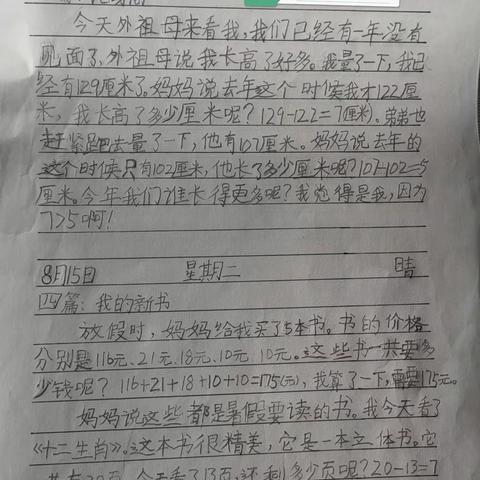 今天外祖母来看我,我们已经有一年没有
见面了,外祖母说我长高了好多。我量了一下,我已
经有129厘米了,妈妈说去年这个时候我才122厘
米,我长高了多少厘米呢?129-122=7(厘米)。弟弟也
赶紧跑去量了一下,他有107厘米。妈妈说去年的
这个时候只有102厘米,他长了多少厘米呢?107-102=5
厘米。今年我们谁长得更多呢?我觉得是我,因为
7>5啊!
8月15日 星期二 晴
四篇:我的新书
放假时,妈妈给我买了5本书。书的价格
分别是116元、21元、18元、10元、10元。这些书一共要多
少钱呢?116+21+18+10+10=175(元),我算了一下,需要175元。
妈妈说这些都是暑假要读的书。我今天看了
《十二生肖》。这本书很精美,它是一本立体书。它
共有20页,今天看了13页,还剩多少页呢?20-13=7